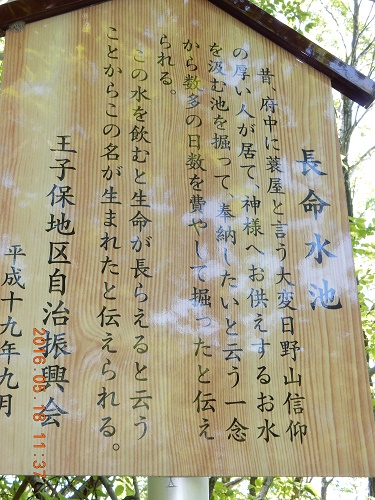 長命水池
昔、府中に蓑屋と言う大変日野山信仰
の厚い人が居て、神様へお供えするお水
を汲む池を掘って、奉納したいと云う一念
から数多の日数を費やして掘ったと伝え
られる。
この水を飲むと生命が長らえると云う
ことからこの名が生まれたと伝えられる。
王子保地区自治振興会
平成十九年九月
2016.09.18 11:37